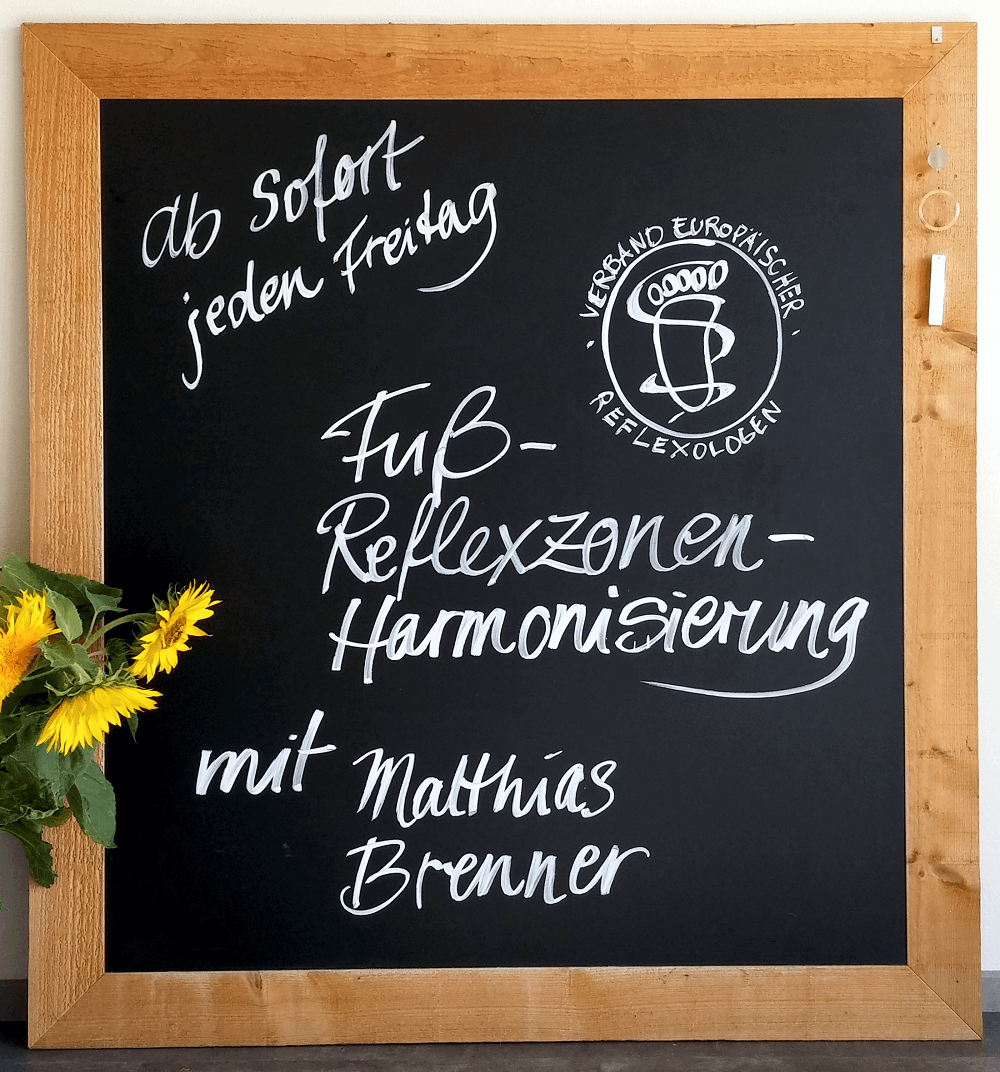 ab Sofort
jeden Freitag
· VERBAND EUROPÄISCHER ·
REFLEXOLOGEN
Fuß-
Reflexzonen-
Harmonisierung
mit Matthias
Brenner